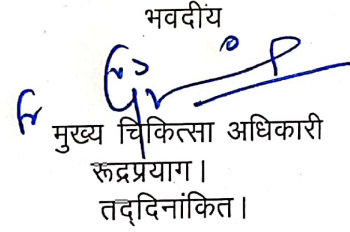 भवदीय
मुख्य चिकित्सा अधिकारी
रूद्रप्रयाग।
तद्दिनांकित।